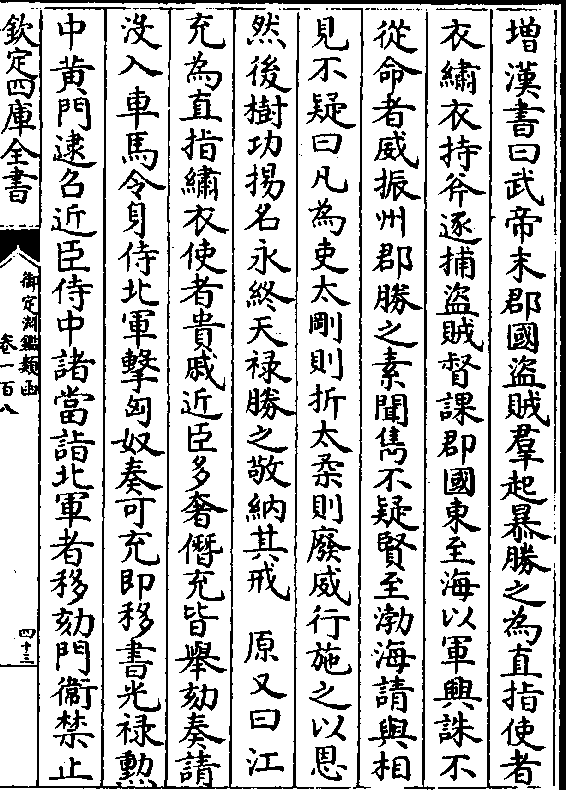 增漢書曰武帝末郡國盜賊羣起暴勝之為直指使者
衣繡衣持斧逐捕盜賊督課郡國東至海以軍興誅不
從命者威振州郡勝之素聞雋不疑賢至渤海請與相
見不疑曰凡為吏太剛則折太柔則廢威行施之以恩
然後樹功揚名永終天祿勝之敬納其戒　原又曰江
充為直指繡衣使者貴戚近臣多奢僭充皆舉劾奏請
沒入車馬令身侍北軍擊匈奴奏可充即移書光祿勲
中黃門逮名近臣侍中諸當詣北軍者移劾門衞禁止
欽定四庫全書
御定淵鑑類函
卷一百八
四十三